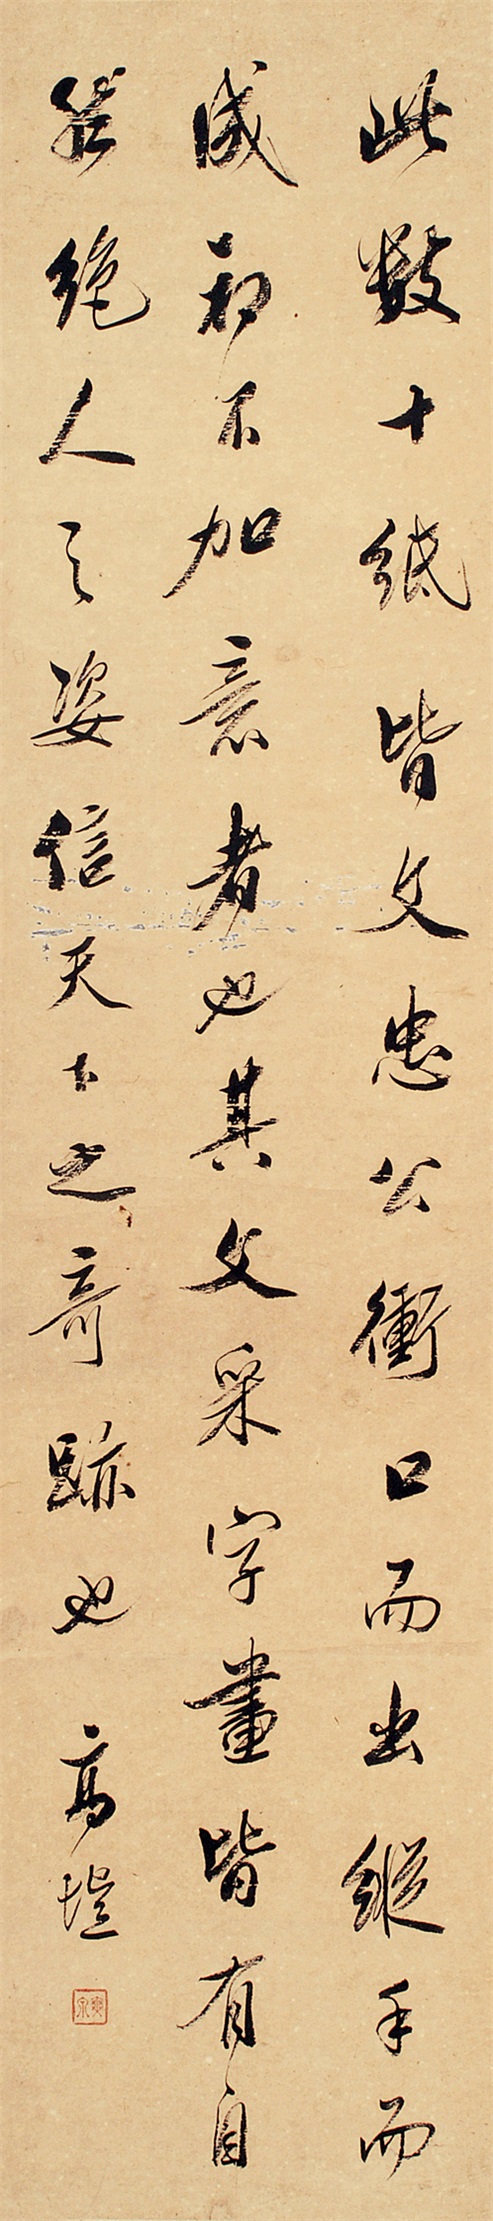 此數十紙皆文忠公衝口而出縱手而
成初不加意者也其文采字畫皆有自
然絕人之姿信天下之奇跡也 高塏